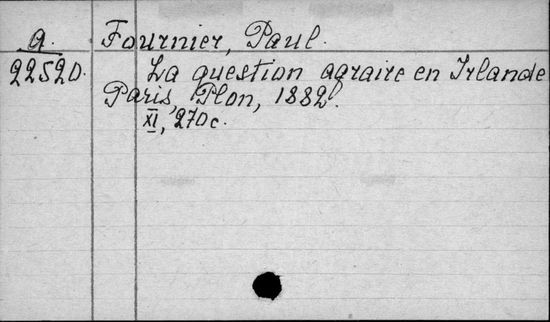 a. Fournier, Paul.
22520. La question agraire en Irlande
Paris, Plon, 1882.
XI, 270 c.